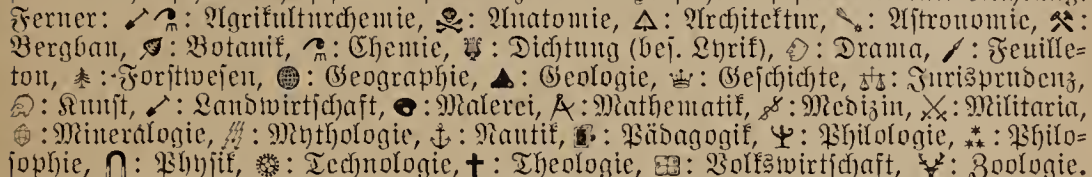 Ferner: : Agrikulturchemie, ☠: Anatomie, △: Architektur, : Astronomie, ⚒:
Bergbau, : Botanik, : Chemie, : Dichtung (bes. Lyrik), : Drama, : Feuille=
ton, : Forstwesen, : Geographie, ▲: Geologie, ♕: Geschichte, ⚖: Jurisprudenz,
: Kunst, : Landwirtschaft, : Malerei, : Mathematik, : Medizin, ⚔: Militaria,
: Mineralogie, : Mythologie, ⚓: Nautik, : Pädagogik, : Philologie, : Philo=
sophie, : Physik, : Technologie, ✝: Theologie, : Volkswirtschaft, : Zoologie.